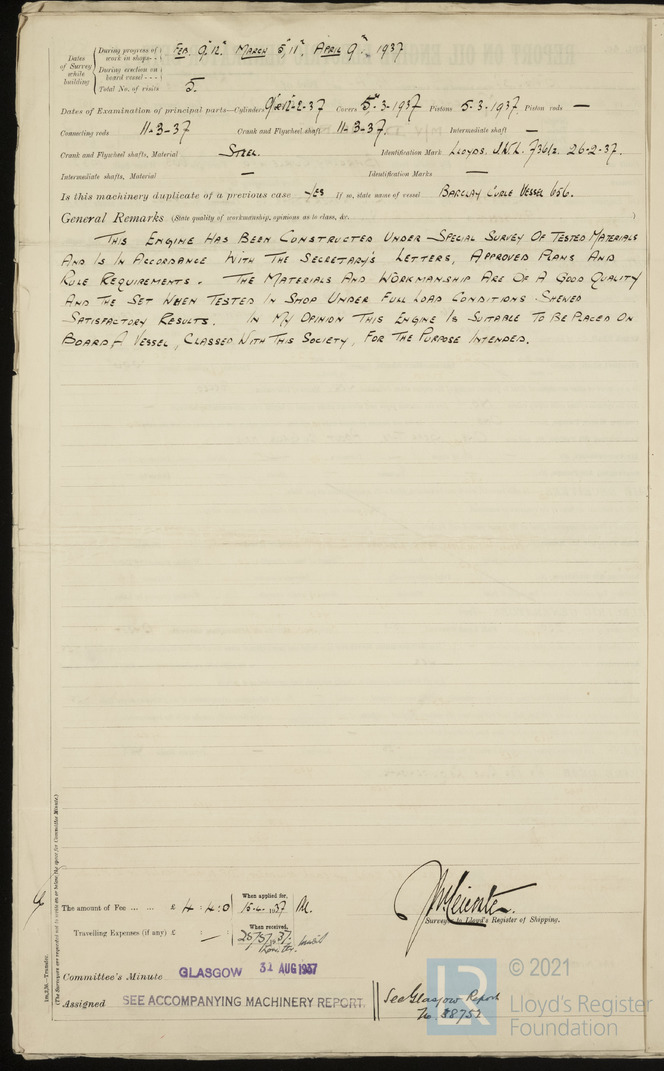 Dates of Survey while building
During progress of work in shops - - Feb. 9th 12th March 5th, 11th, April 9th, 1937
During erection on board vessel - - -
Total No. of visits 5.
Dates of Examination of principal parts—Cylinders 9/2 & 12-2-37 Covers 5th-3-1937 Pistons 5-3-1937. Piston rods —
Connecting rods 11-3-37 Crank and Flywheel shaft 11-3-37. Intermediate shaft —
Crank and Flywheel shafts, Material Steel. Identification Mark Lloyds. 26-2-37.
Intermediate shafts, Material — Identification Marks —
Is this machinery duplicate of a previous case Yes If so, state name of vessel Barclay Curle Vessel 656.
General Remarks (State quality of workmanship, opinions as to class, &c. )
This Engine Has Been Constructed Under Special Survey Of Tested Materials
And Is In Accordance With The Secretary's Letters, Approved Plans And
Rule Requirements. The Materials And Workmanship Are Of A Good Quality
And The Set When Tested In Shop Under Full Load Conditions Shewed
Satisfactory Results. In My Opinion This Engine Is Suitable To Be Placed On
Board A Vessel, Classed With This Society, For The Purpose Intended.
The amount of Fee ... ... £ 4 : 4 : 0 When applied for, 15-4-1937
Travelling Expenses (if any) £ : — : When received, 28/5/1937
Surveyor to Lloyd's Register of Shipping.
Committee's Minute GLASGOW 31 AUG 1937
Assigned SEE ACCOMPANYING MACHINERY REPORT.
See Glasgow Report
No. 58752
1m.7.36.—Transfer.
(The Surveyors are requested not to write on or below the space for Committee Minute.)
© 2021
LR
Lloyd's Register
Foundation